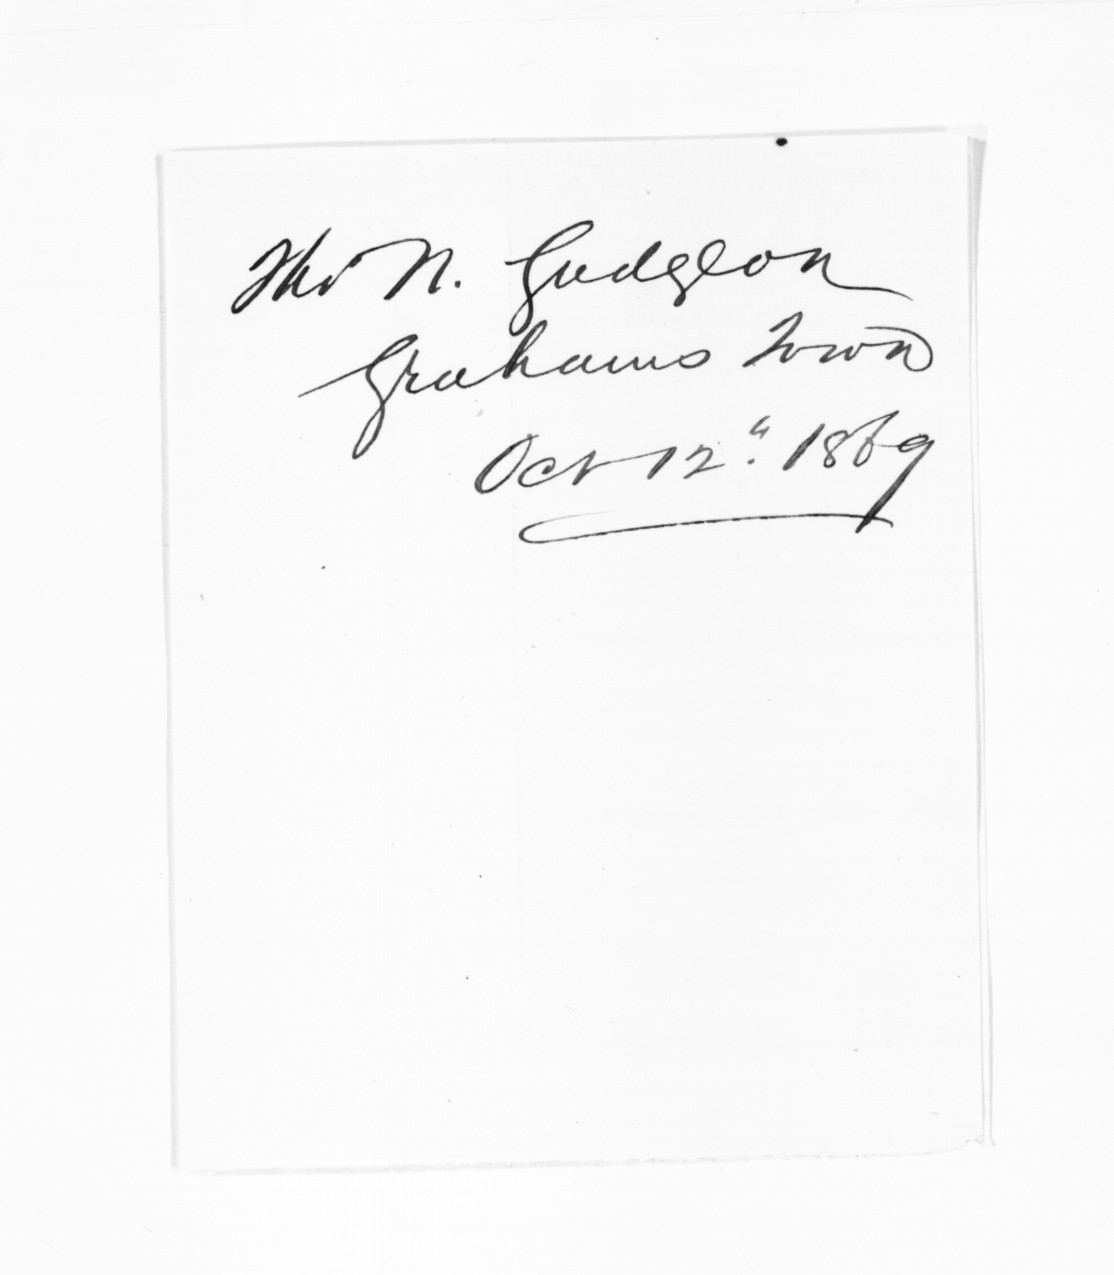 Tho N. Gudgeon
Grahams Town
Oct 12". 1869